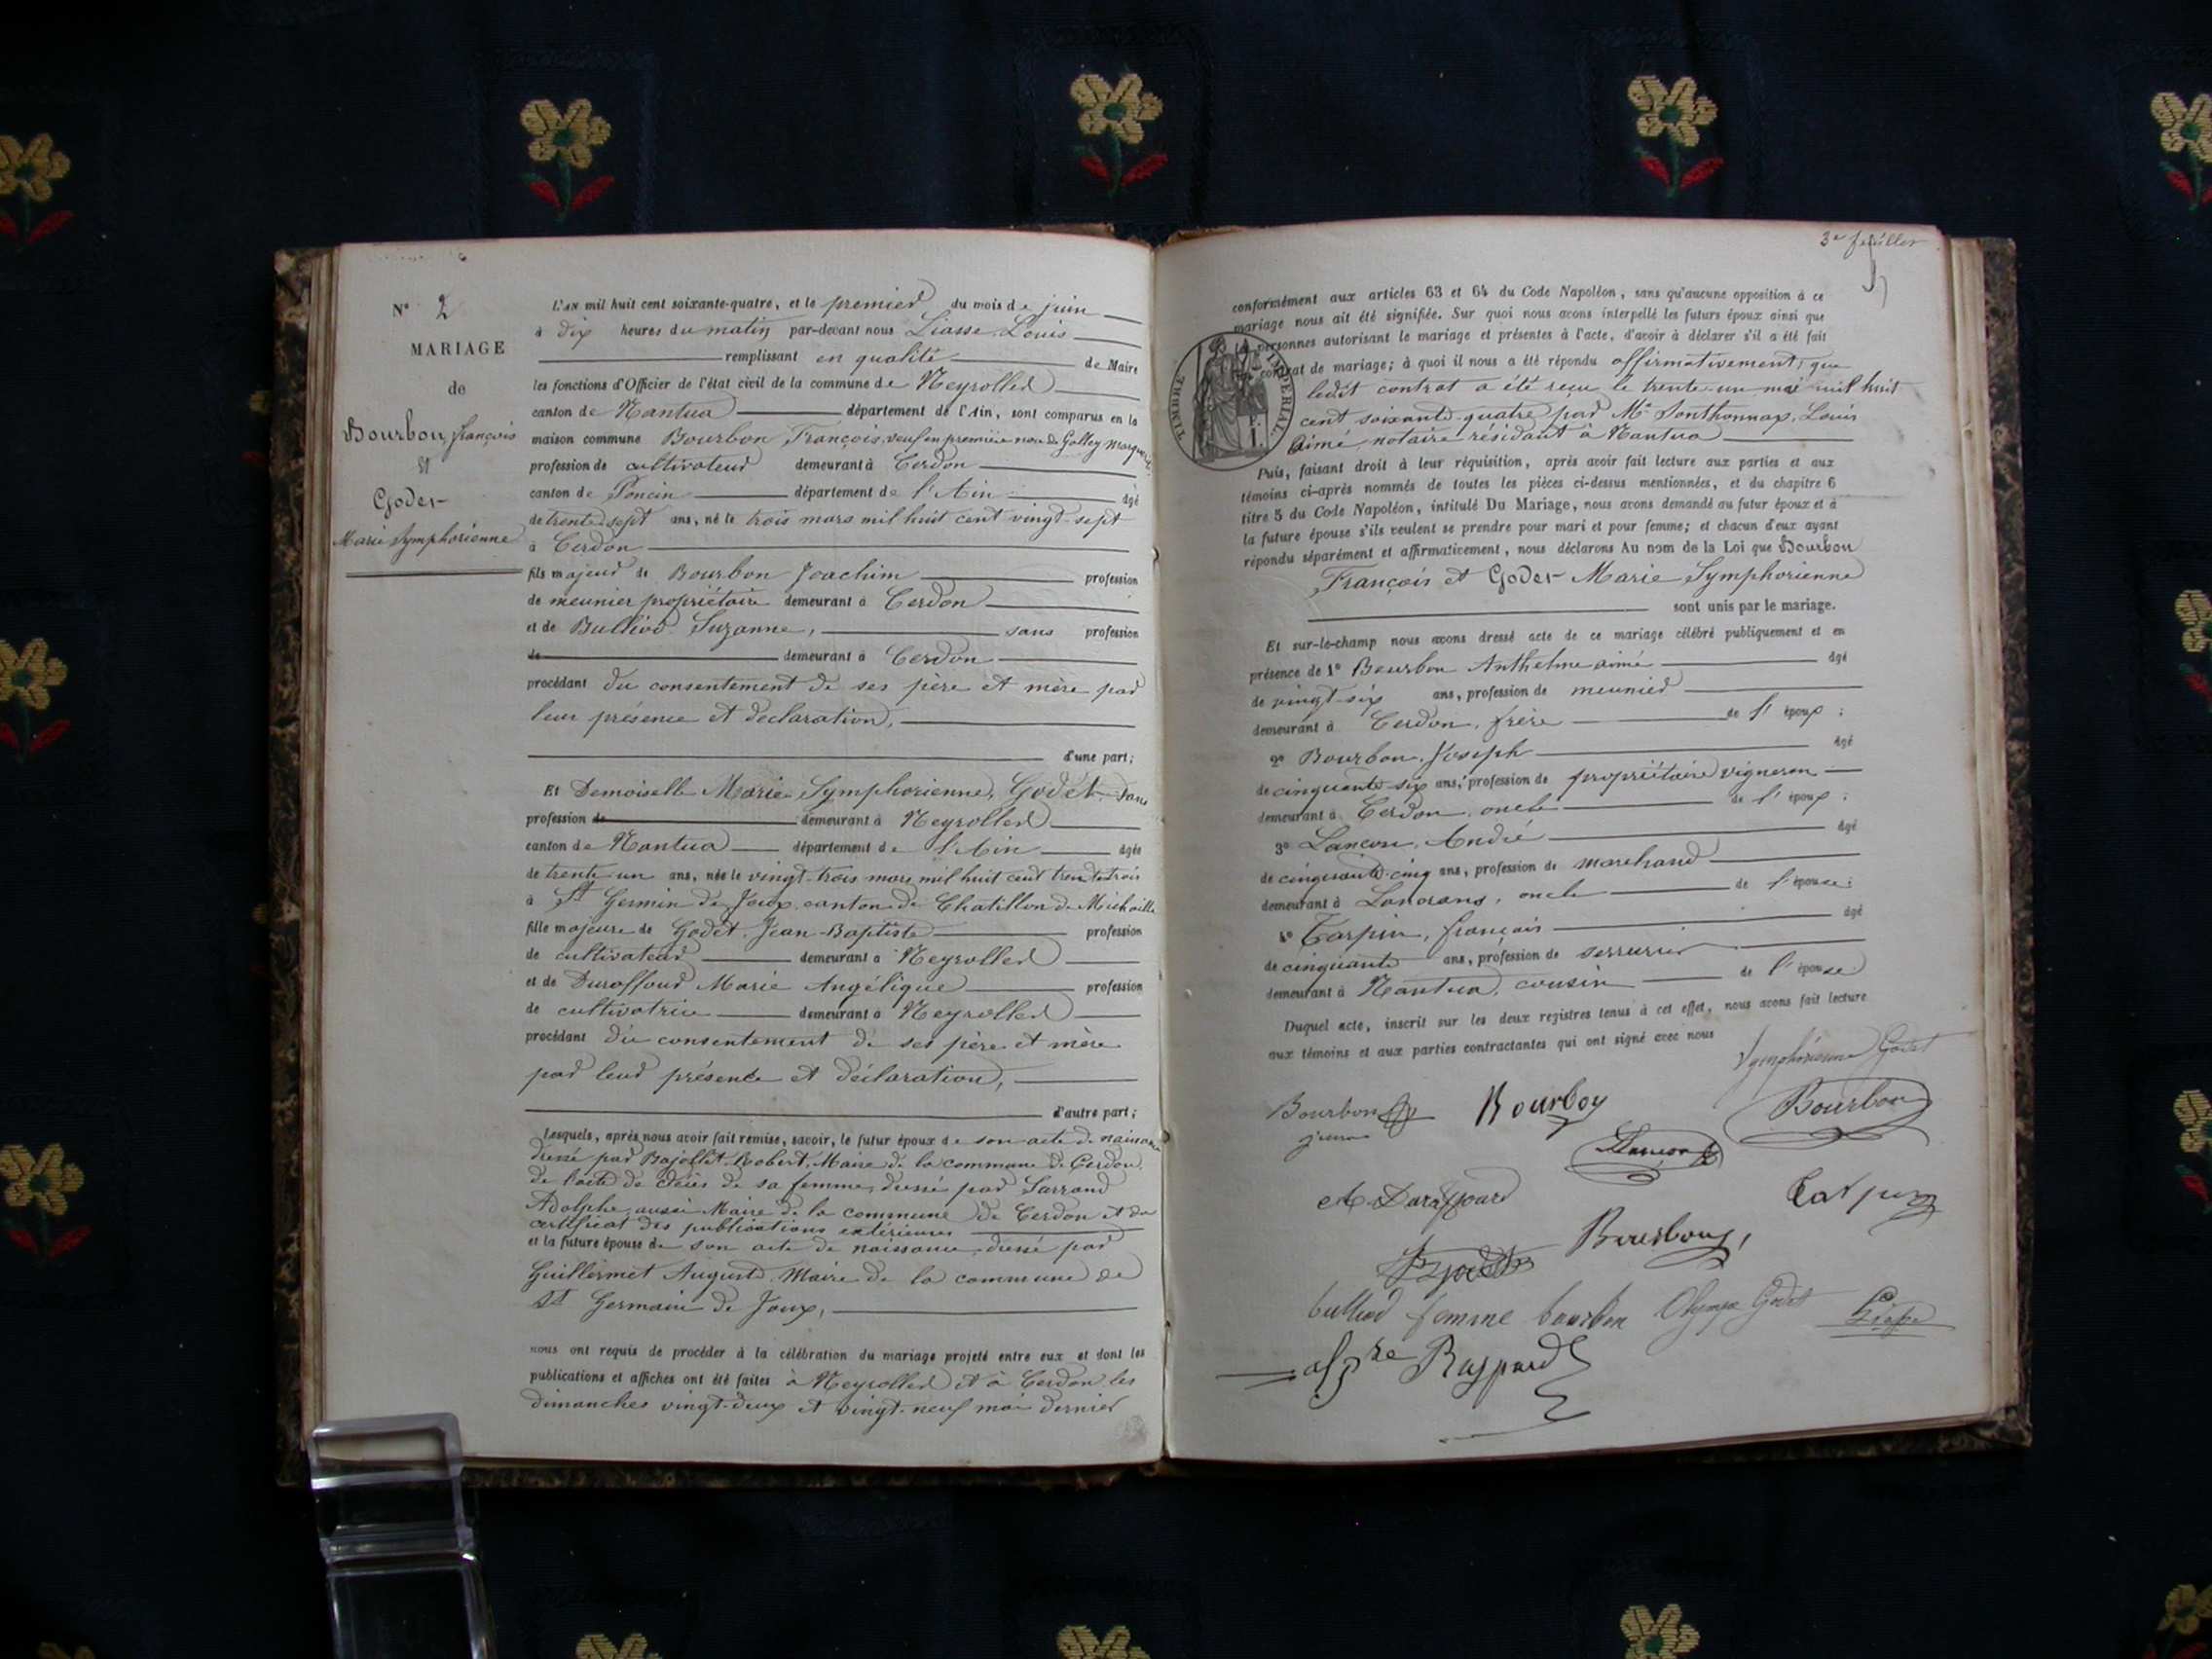 N° 2
MARIAGE
de
Bourbon, françois
et
Godet
Marie Symphorienne
L'AN mil huit cent soixante-quatre, et le premier du mois de juin
à dix heures du matin par-devant nous Liasse Louis
remplissant en qualité de Maire
les fonctions d'Officier de l'état civil de la commune de Neyrolles
canton de Nantua département de l'Ain, sont comparus en la
maison commune Bourbon François, veuf en première noce de Golley
profession de cultivateur demeurant à Cerdon
canton de Poncin département de l'Ain âgé
de trente-sept ans, né le trois mars mil huit cent vingt-sept
à Cerdon
fils majeur de Bourbon Joachim profession
de meunier propriétaire demeurant à Cerdon
et de Bulliod Suzanne, sans profession
de demeurant à Cerdon
procédant du consentement de ses père et mère par
leur présence et déclaration,
d'une part;
Et Demoiselle Marie Symphorienne, Godet, sans
profession de demeurant à Neyrolles
canton de Nantua département de l'Ain âgée
de trente-un ans, née le vingt-trois mars mil huit cent trente-trois
à St Germin de Joux canton de Chatillon de Michaille
fille majeure de Godet, Jean-Baptiste profession
de cultivateur demeurant à Neyrolles
et de Duraffour Marie Angélique profession
de cultivatrice demeurant à Neyrolles
procédant du consentement de ses père et mère
par leur présence et déclaration,
d'autre part;
Lesquels, après nous avoir fait remise, savoir, le futur époux de son acte de naissance
dressé par Bajollet Robert, Maire de la commune de Cerdon,
de l'acte de décès de sa femme, dressé par Sarrand
Adolphe aussi Maire de la commune de Cerdon et du
certificat des publications extérieures
et la future épouse de son acte de naissance, dressé par
Guillermet August Maire de la commune de
St Germain de Joux,
nous ont requis de procéder à la célébration du mariage projeté entre eux et dont les
publications et affiches ont été faites à Neyrolles et à Cerdon les
dimanches vingt-deux et vingt-neuf mai dernier
3e feuillet
conformément aux articles 63 et 64 du Code Napoléon, sans qu'aucune opposition à ce
mariage nous ait été signifiée. Sur quoi nous avons interpellé les futurs époux ainsi que
personnes autorisant le mariage et présentes à l'acte, d'avoir à déclarer s'il a été fait
contrat de mariage; à quoi il nous a été répondu affirmativement, que
ledit contrat a été reçu le trente-un mai mil huit
cent soixante-quatre par Me Sonthonnax, Louis
Aimé notaire résidant à Nantua
TIMBRE IMPERIAL
Puis, faisant droit à leur réquisition, après avoir fait lecture aux parties et aux
témoins ci-après nommés de toutes les pièces ci-dessus mentionnées, et du chapitre 6
titre 5 du Code Napoléon, intitulé Du Mariage, nous avons demandé au futur époux et à
la future épouse s'ils veulent se prendre pour mari et pour femme; et chacun d'eux ayant
répondu séparément et affirmativement, nous déclarons Au nom de la Loi que Bourbon
François et Godet Marie Symphorienne
sont unis par le mariage.
Et sur-le-champ nous avons dressé acte de ce mariage célébré publiquement et en
présence de 1° Bourbon Anthelme aimé âgé
de vingt-six ans, profession de meunier
demeurant à Cerdon, frère de l'époux;
2° Bourbon, Joseph âgé
de cinquante-six ans, profession de propriétaire vigneron
demeurant à Cerdon, oncle de l'époux;
3° Lançon, André âgé
de cinquante-cinq ans, profession de marchand
demeurant à Lanorans, oncle de l'épouse;
4° Tarpin, françois âgé
de cinquante ans, profession de serrurier
demeurant à Nantua, cousin de l'épouse
Duquel acte, inscrit sur les deux registres tenus à cet effet, nous avons fait lecture
aux témoins et aux parties contractantes qui ont signé avec nous
Symphorienne Godet
Bourbon Bourbon Bourbon
jeune
Lançon
A. Duraffourd Tarpin
Bourbon
bulliod femme bourbon Olympe Godet Liasse